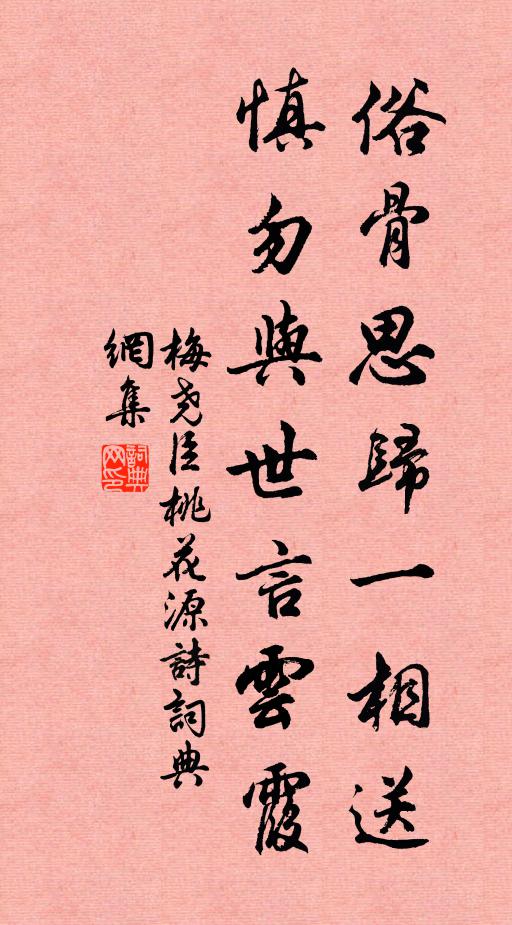 俗骨思歸一相送
慎勿與世言雲霞
梅堯臣桃花源詩詞典
網集
詞典网印